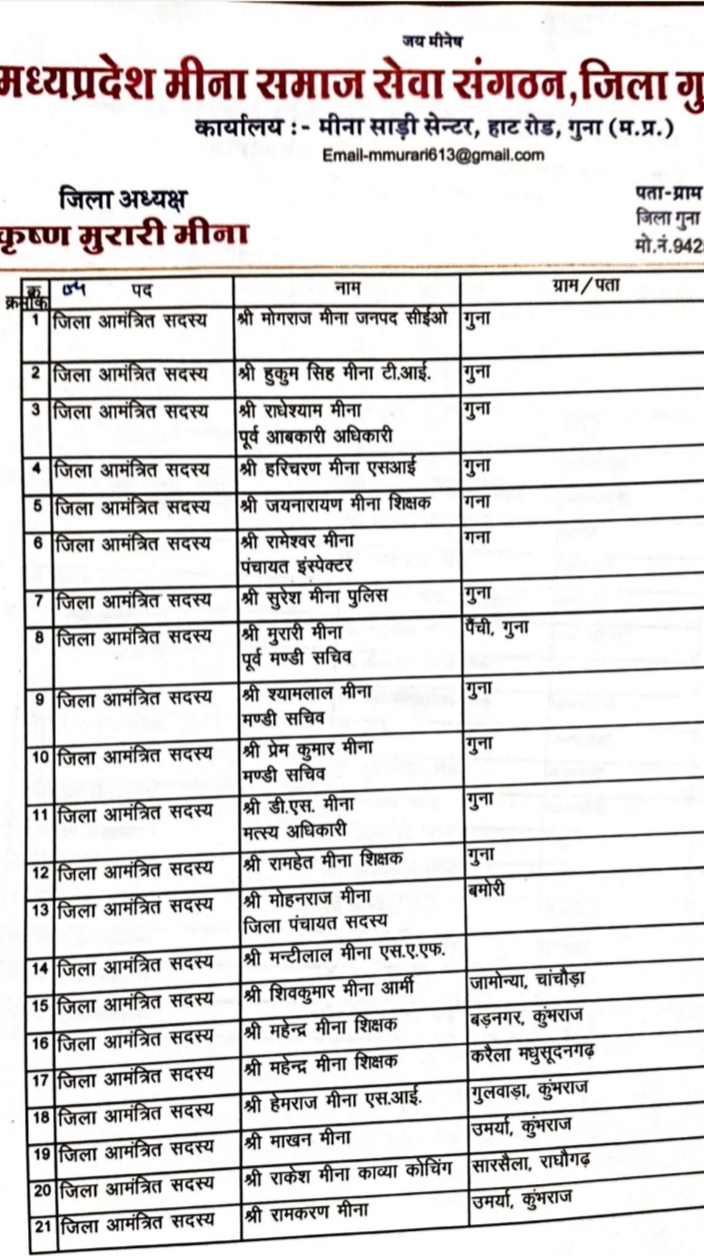 जय मीनेष
मध्यप्रदेश मीना समाज सेवा संगठन,जिला गु
कार्यालय :- मीना साड़ी सेन्टर, हाट रोड, गुना (म.प्र.)
Email-mmurari613@gmail.com
जिला अध्यक्ष
कृष्ण मुरारी मीना
पता-ग्राम
जिला गुना
मो.नं.942
क्रमांक पद नाम ग्राम/पता
1 जिला आमंत्रित सदस्य श्री मोगराज मीना जनपद सीईओ गुना
2 जिला आमंत्रित सदस्य श्री हुकुम सिह मीना टी.आई. गुना
3 जिला आमंत्रित सदस्य श्री राधेश्याम मीना गुना
पूर्व आबकारी अधिकारी
4 जिला आमंत्रित सदस्य श्री हरिचरण मीना एसआई गुना
5 जिला आमंत्रित सदस्य श्री जयनारायण मीना शिक्षक गना
6 जिला आमंत्रित सदस्य श्री रामेश्वर मीना गना
पंचायत इंस्पेक्टर
7 जिला आमंत्रित सदस्य श्री सुरेश मीना पुलिस गुना
8 जिला आमंत्रित सदस्य श्री मुरारी मीना पैंची, गुना
पूर्व मण्डी सचिव
9 जिला आमंत्रित सदस्य श्री श्यामलाल मीना गुना
मण्डी सचिव
10 जिला आमंत्रित सदस्य श्री प्रेम कुमार मीना गुना
मण्डी सचिव
11 जिला आमंत्रित सदस्य श्री डी.एस. मीना गुना
मत्स्य अधिकारी
12 जिला आमंत्रित सदस्य श्री रामहेत मीना शिक्षक गुना
13 जिला आमंत्रित सदस्य श्री मोहनराज मीना बमोरी
जिला पंचायत सदस्य
14 जिला आमंत्रित सदस्य श्री मन्टीलाल मीना एस.ए.एफ.
15 जिला आमंत्रित सदस्य श्री शिवकुमार मीना आर्मी जामोन्या, चांचौड़ा
16 जिला आमंत्रित सदस्य श्री महेन्द्र मीना शिक्षक बड़नगर, कुंभराज
17 जिला आमंत्रित सदस्य श्री महेन्द्र मीना शिक्षक करैला मधुसूदनगढ़
18 जिला आमंत्रित सदस्य श्री हेमराज मीना एस.आई. गुलवाड़ा, कुंभराज
19 जिला आमंत्रित सदस्य श्री माखन मीना उमर्या, कुंभराज
20 जिला आमंत्रित सदस्य श्री राकेश मीना काव्या कोचिंग सारसैला, राघौगढ़
21 जिला आमंत्रित सदस्य श्री रामकरण मीना उमर्या, कुंभराज